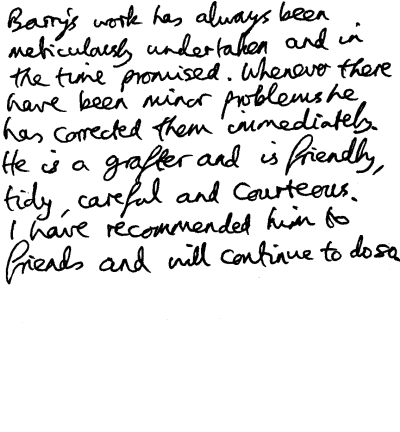 Barry's work has always been
meticulously undertaken and in
the time promised. Whenever there
have been minor problems he
has corrected them immediately.
He is a grafter and is friendly,
tidy, careful and courteous.
I have recommended him to
friends and will continue to do so